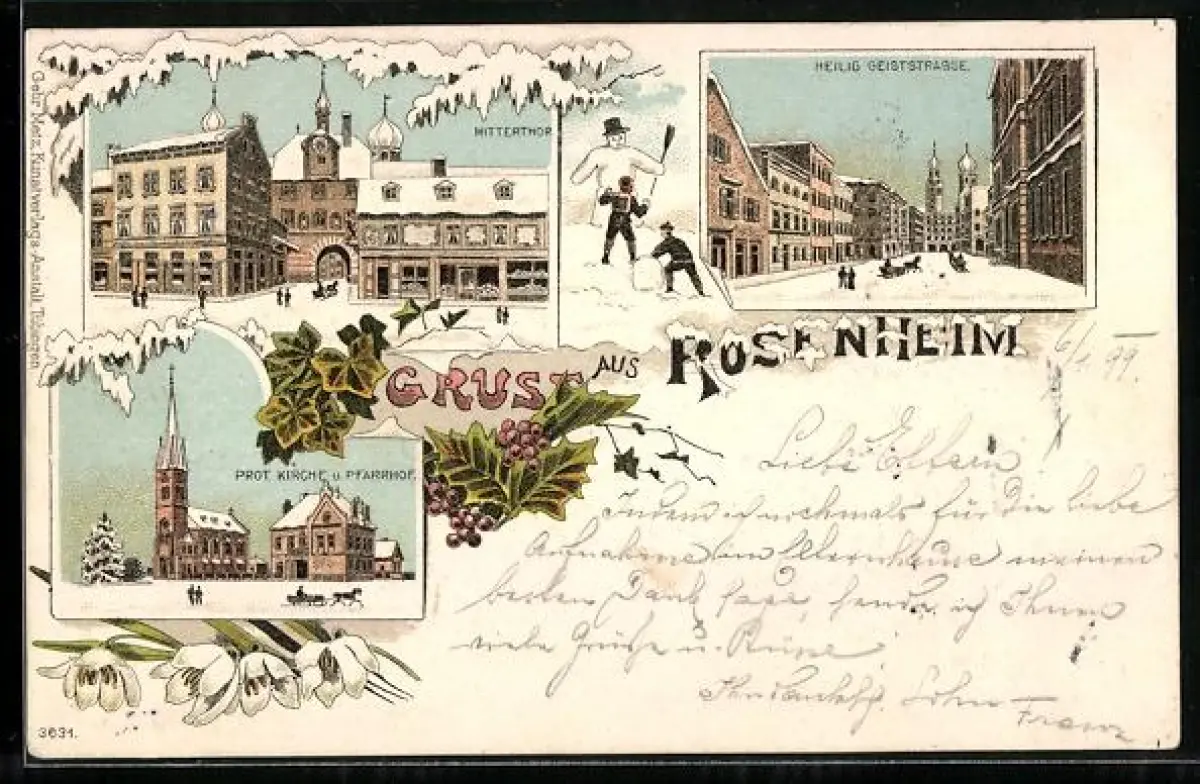 Gebr. Metz, Kunstverlags-Anstalt, Tübingen
MITTERTHOR
HEILIG GEISTSTRASSE.
GRUSS AUS ROSENHEIM
6/1 99.
PROT. KIRCHE u. PFARRHOF.
Liebe Eltern
Indem ich nochmals für die liebe
Aufnahme im Elternhause meinen
besten Dank sage, sende ich Ihnen
viele Grüße u. Küße
Ihr dankbg. Sohn
Franz
3631.